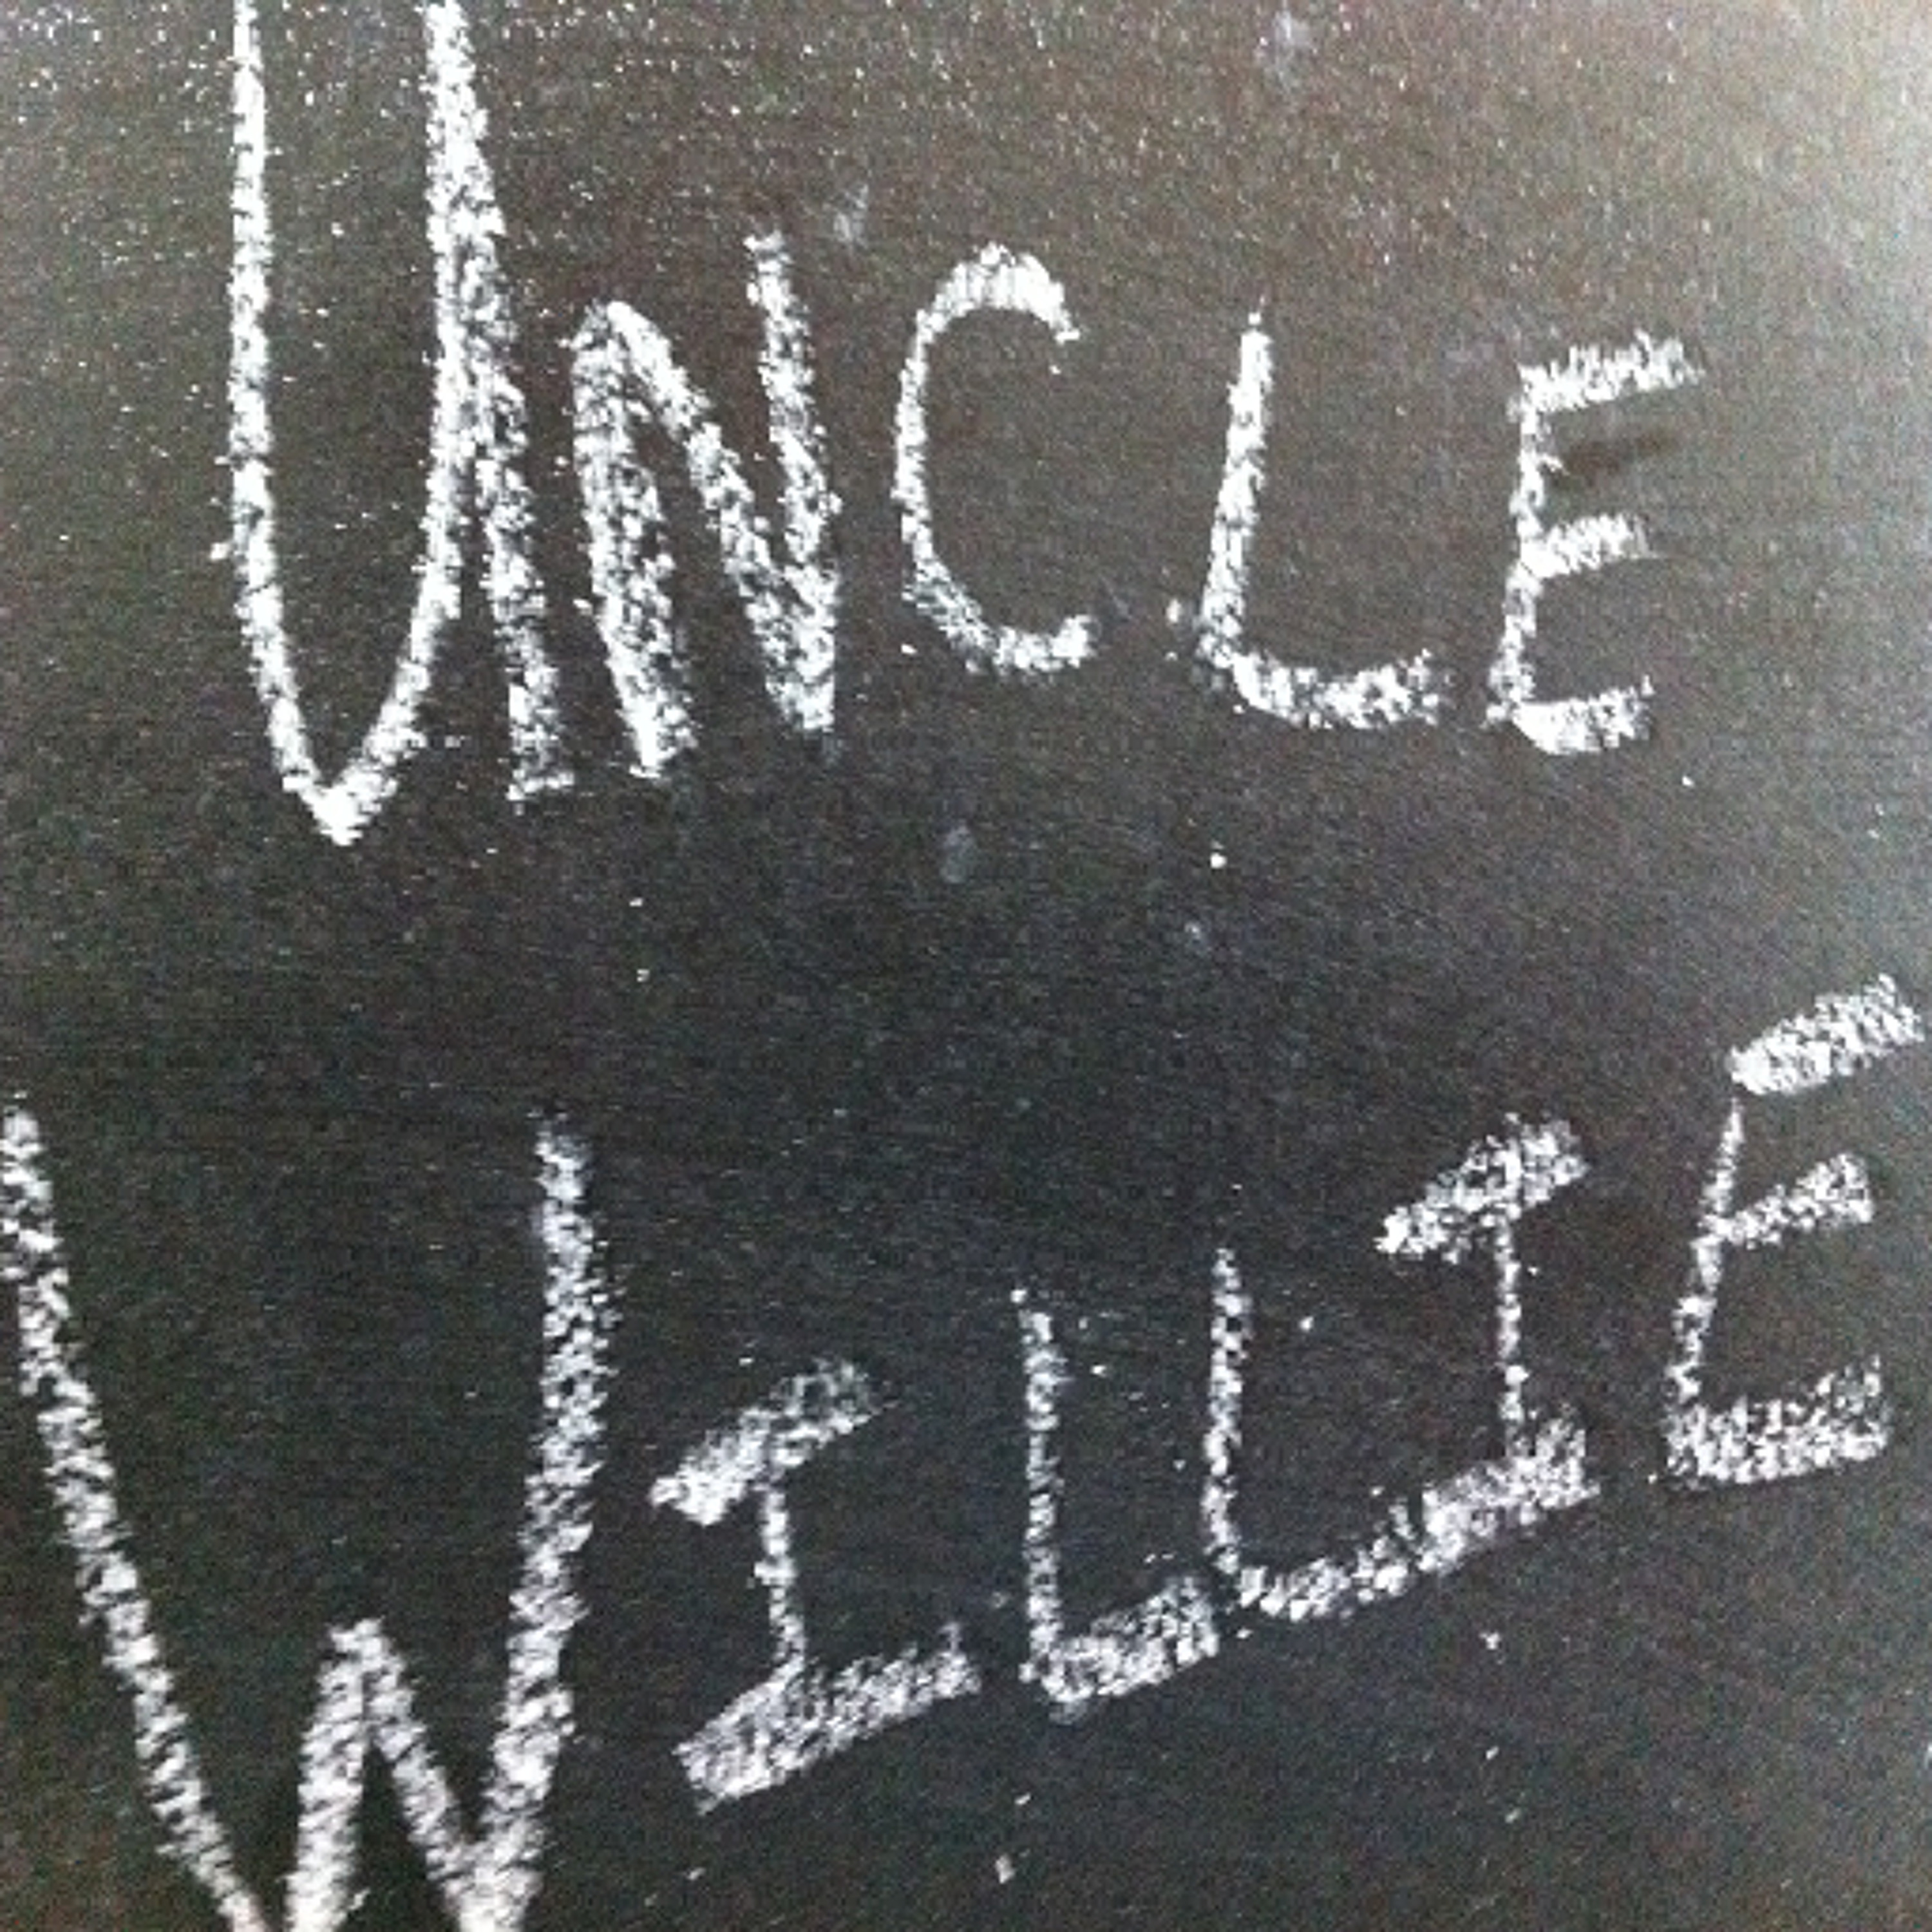 UNCLE
WILLIE